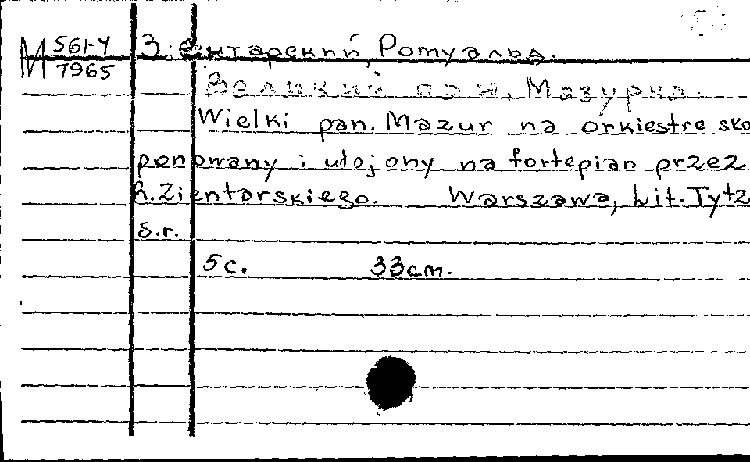 М 561-4
7965
Зентарский, Ромуальд.
Великий пан. Мазурка.
Wielki pan. Mazur na orkiestrę sko
ponowany i ułojony na fortepian przez
R. Zientarskiego. Warszawa, Lit. Tytz
s.r.
5 c. 33 cm.